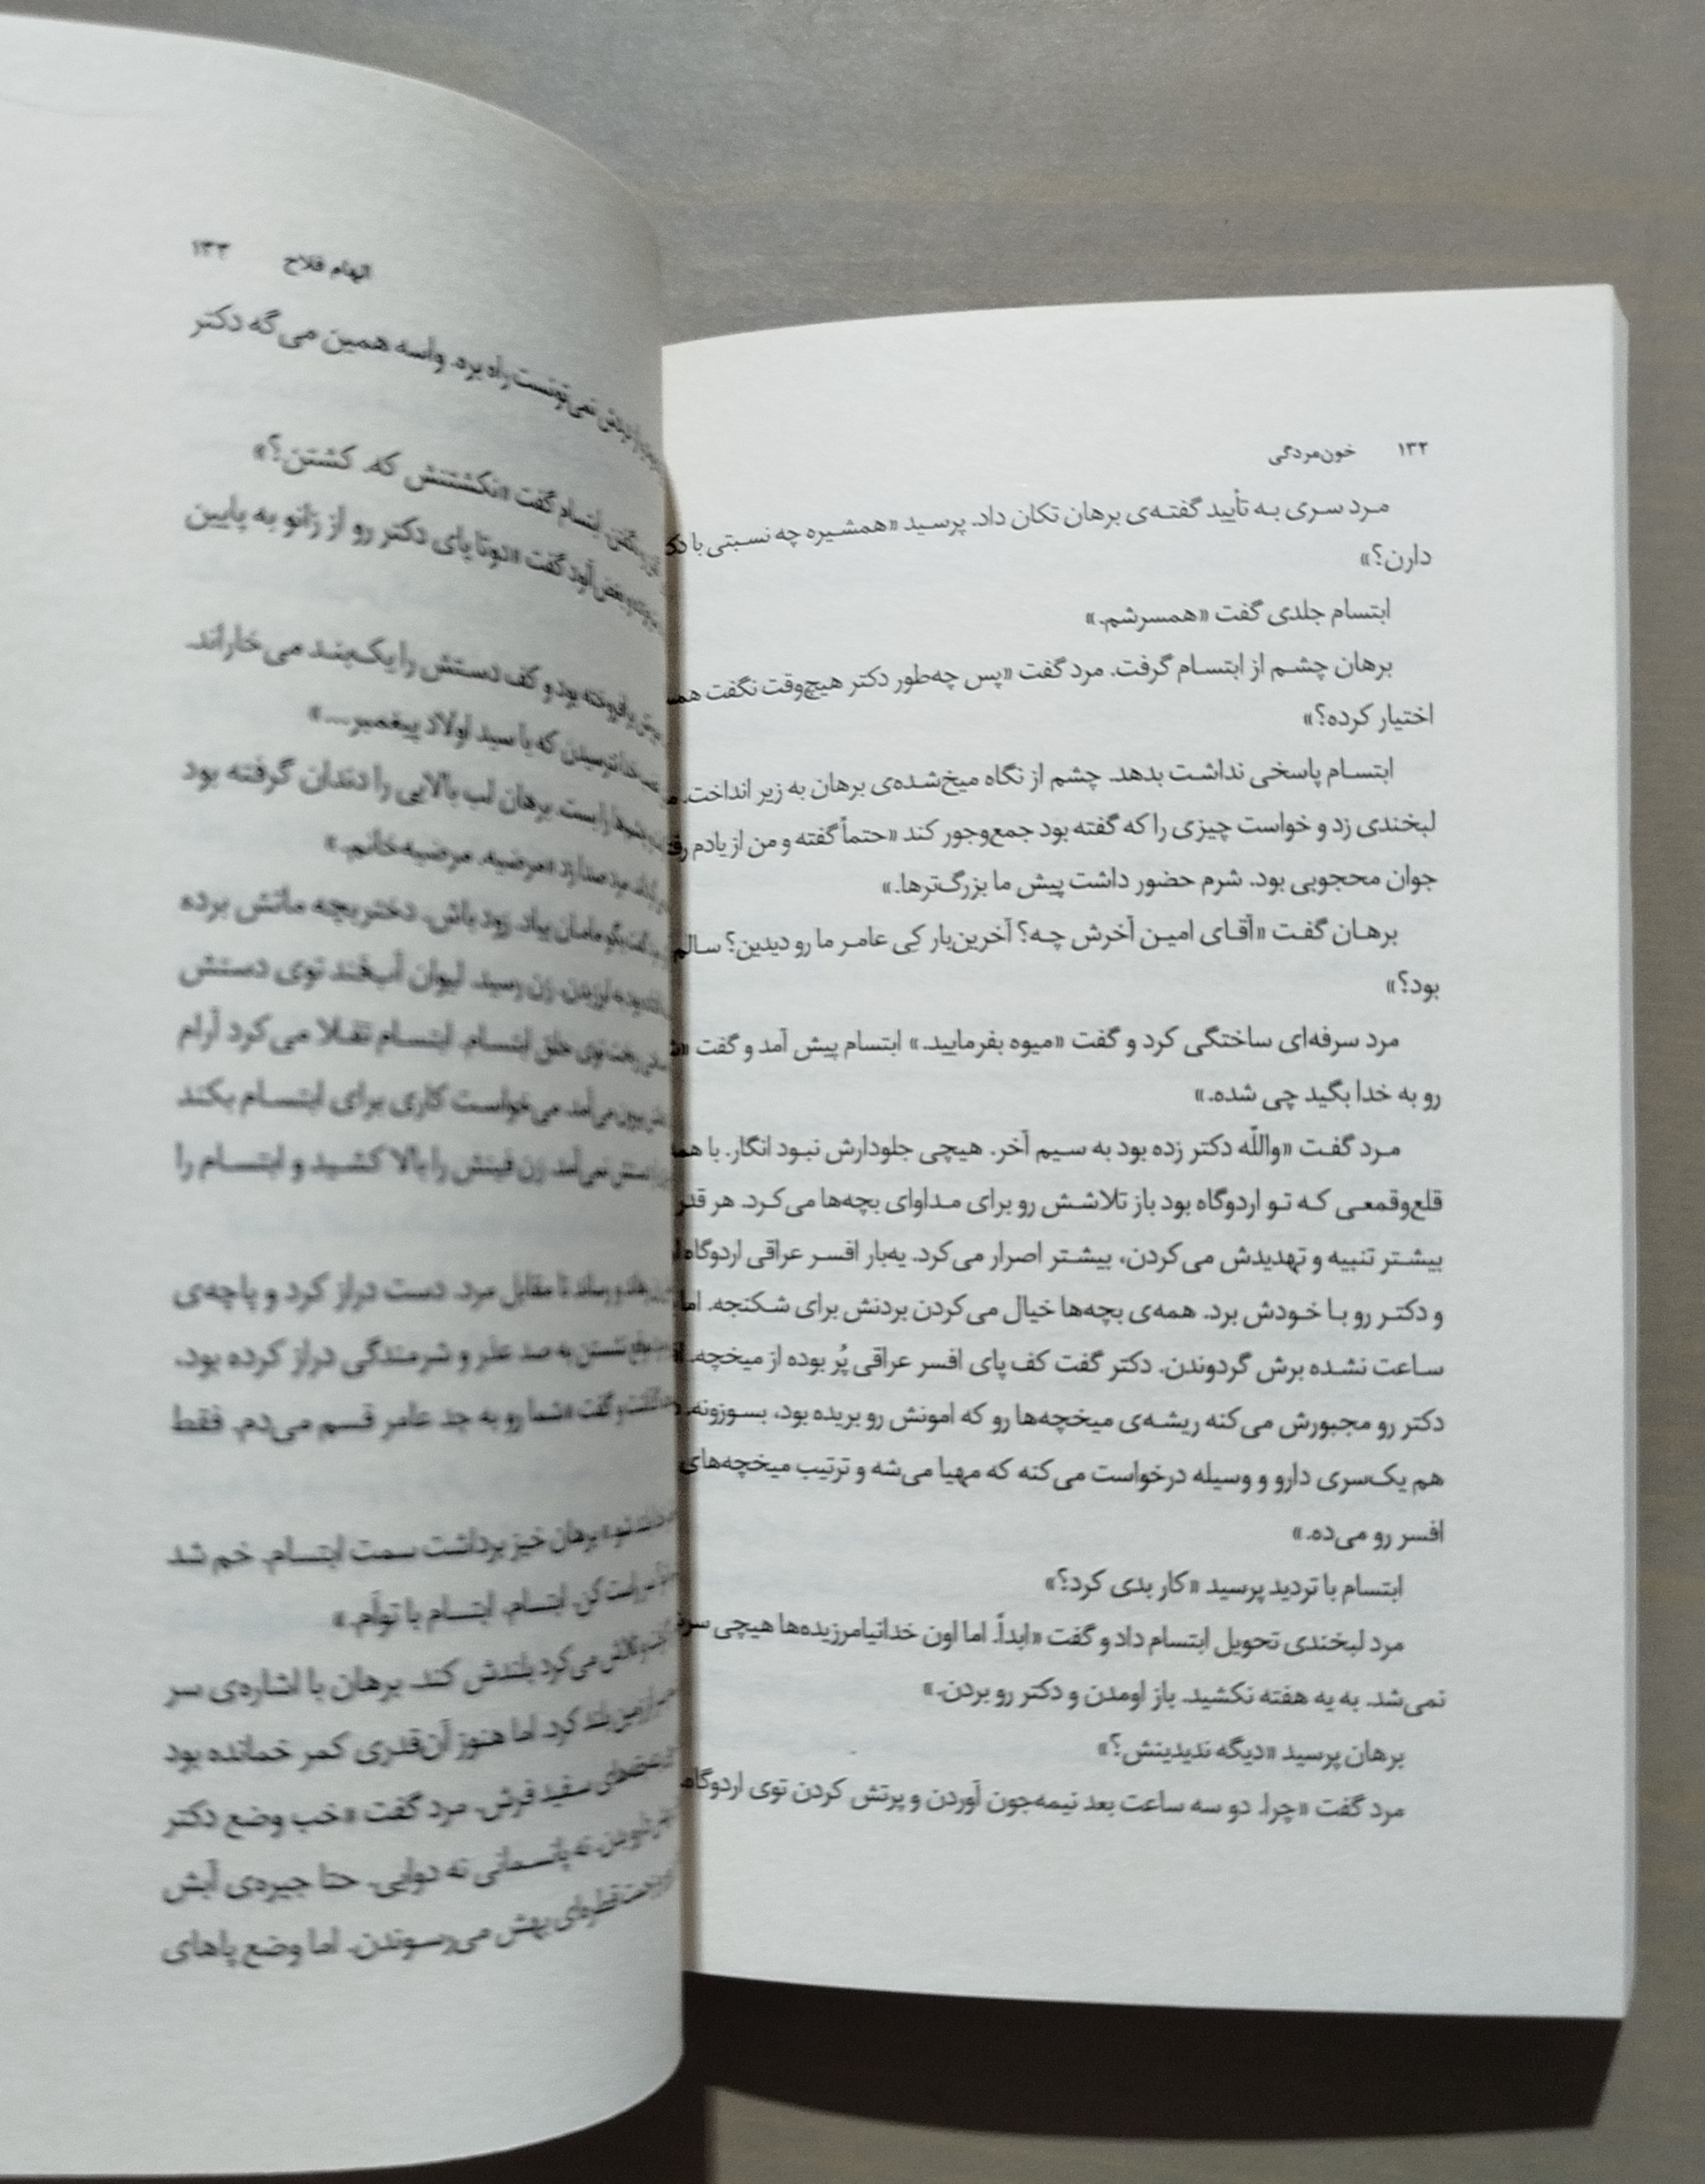 ۱۳۲ خون‌مردگی
مرد سری به تأیید گفته‌ی برهان تکان داد. پرسید «همشیره چه نسبتی با
دارن؟»
ابتسام جلدی گفت «همسرشم.»
برهان چشم از ابتسام گرفت. مرد گفت «پس چه‌طور دکتر هیچ‌وقت نگفت
اختیار کرده؟»
ابتسام پاسخی نداشت بدهد. چشم از نگاه میخ‌شده‌ی برهان به زیر انداخت.
لبخندی زد و خواست چیزی را که گفته بود جمع‌وجور کند «حتماً گفته و من از یادم
جوان محجوبی بود. شرم حضور داشت پیش ما بزرگ‌ترها.»
برهان گفت «آقای امین آخرش چه؟ آخرین‌بار کِی عامر ما رو دیدین؟ سالم
بود؟»
مرد سرفه‌ای ساختگی کرد و گفت «میوه بفرمایید.» ابتسام پیش آمد و گفت
رو به خدا بگید چی شده.»
مرد گفت «واللّه دکتر زده بود به سیم آخر. هیچی جلودارش نبود انگار. با
قلع‌وقمعی که تو اردوگاه بود باز تلاشش رو برای مداوای بچه‌ها می‌کرد. هر قدر
بیشتر تنبیه و تهدیدش می‌کردن، بیشتر اصرار می‌کرد. یه‌بار افسر عراقی اردوگاه
و دکتر رو با خودش برد. همه‌ی بچه‌ها خیال می‌کردن بردنش برای شکنجه. اما
ساعت نشده برش گردوندن. دکتر گفت کف پای افسر عراقی پُر بوده از میخچه.
دکتر رو مجبورش می‌کنه ریشه‌ی میخچه‌ها رو که امونش رو بریده بود، بسوزونه.
هم یک‌سری دارو و وسیله درخواست می‌کنه که مهیا می‌شه و ترتیب میخچه‌های
افسر رو می‌ده.»
ابتسام با تردید پرسید «کار بدی کرد؟»
مرد لبخندی تحویل ابتسام داد و گفت «ابداً. اما اون خدانیامرزیده‌ها هیچی
نمی‌شد. به یه هفته نکشید. باز اومدن و دکتر رو بردن.»
برهان پرسید «دیگه ندیدینش؟»
مرد گفت «چرا. دو سه ساعت بعد نیمه‌جون آوردن و پرتش کردن توی اردوگاه.
الهام فلاح ۱۳۳
نمی‌تونست راه بره. واسه همین می‌گه دکتر
ابتسام گفت «نکشتنش که. کشتن؟»
گفت «دوتا پای دکتر رو از زانو به پایین
برافروخته بود و کف دستش را یک‌بند می‌خاراند.
نترسیدن که با سید اولاد پیغمبر...»
را بست. برهان لب بالایی را دندان گرفته بود
مرد صدا زد «مرضیه. مرضیه‌خانم.»
بگو مامان بیاد. زود باش. دختربچه ماتش برده
لرزیدن. زن رسید. لیوان آب‌قند توی دستش
ریخت توی حلق ابتسام. ابتسام تقلا می‌کرد آرام
بیرون می‌آمد. می‌خواست کاری برای ابتسام بکند
دستش نمی‌آمد. زن فینش را بالا کشید و ابتسام را
رساند تا مقابل مرد. دست دراز کرد و پاچه‌ی
موقع نشستن به صد عذر و شرمندگی دراز کرده بود،
و گفت «شما رو به جد عامر قسم می‌دم. فقط
برهان خیز برداشت سمت ابتسام. خم شد
راست کن. ابتسام. ابتسام با توأم.»
تلاش می‌کرد بلندش کند. برهان با اشاره‌ی سر
از زمین بلند کرد. اما هنوز آن‌قدری کمر خمانده بود
سفید فرش. مرد گفت «خب وضع دکتر
نه پانسمانی نه دوایی. حتا جیره‌ی آبش
قطره‌ای بهش می‌رسوندن. اما وضع پاهای